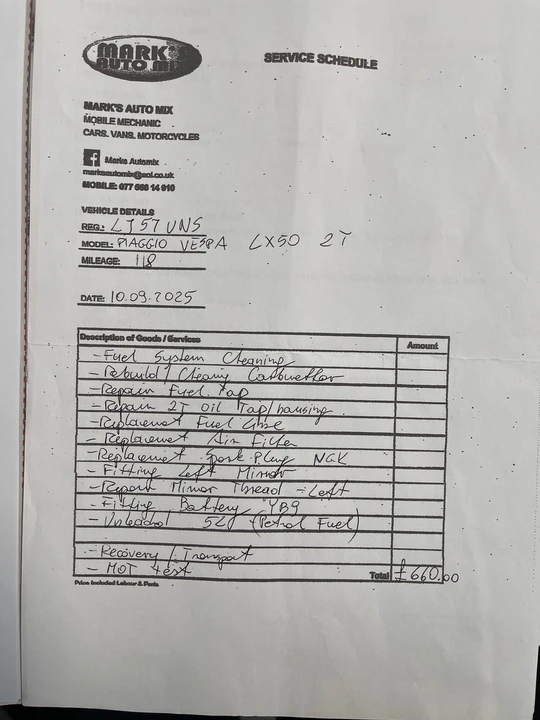 MARK'S
AUTO MIX
SERVICE SCHEDULE
MARK'S AUTO MIX
MOBILE MECHANIC
CARS. VANS. MOTORCYCLES
Marks Automix
marksautomix@aol.co.uk
MOBILE: 077 656 14 910
VEHICLE DETAILS
REG.: LJ57 UNS
MODEL: PIAGGIO VESPA LX50 2T
MILEAGE: 118
DATE: 10.09.2025
Description of Goods / Services Amount
- Fuel System Cleaning
- Rebuild / Cleaning Carburettor
- Repair Fuel Tap
- Repair 2T Oil Tap/housing
- Replacement Fuel Line
- Replacement Air Filter
- Replacement Spark Plug NGK
- Fitting Left Mirror
- Repair Mirror Thread - Left
- Fitting Battery YB9
- Unleaded (Petrol Fuel)
- Recovery / Transport
- MOT test
Total £660.00
Price Included Labour & Parts